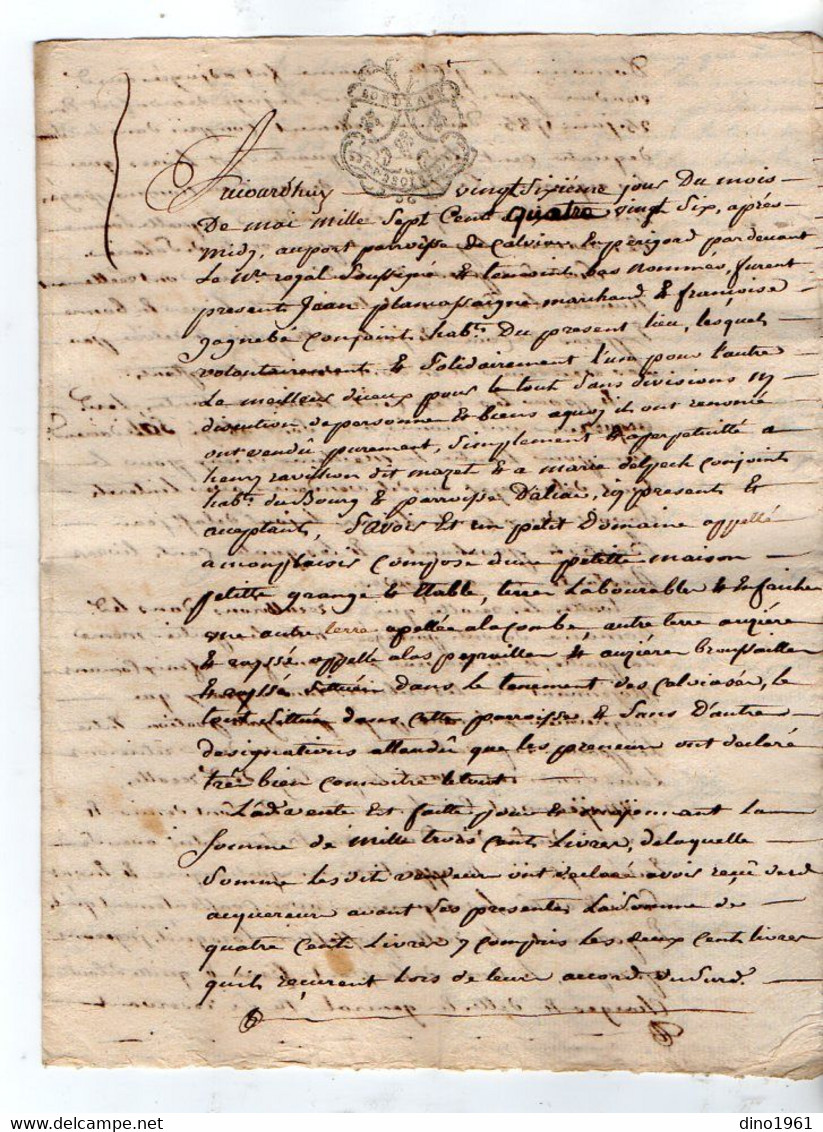 BORDEAUX
Aujourdhuy vingt Sixiéme jour Du mois
De mai mille Sept Cent quatre vingt Six, aprés
midy, au port parroisse de Calviac En perigord par devant
Le Nre. royal Soussigné & temoins bas nommés, furent
present Jean planchassaigne marchand & francoise
gagnebé conjoints habts. Du present lieu, lesquels
volontairement & Solidairement l'un pour l'autre
Le meilleur d'iceux pour le tout Sans divisions ny
discution de personne & biens a quoy ils ont renoncé
ont vendû purement, Simplement & a perpetuitté a
henry ravilhon dit mazet & a marie delpech conjoints
habts. du Bourg & parroisse D'aliac, icy presents &
acceptants, Savoir Est un petit Domaine appellé
a monplaisir composé d'une petitte maison
petitte grange & Etable, terres Labourables & En faiches
une autre terre apellée a la combe, autre terre
& appellé a las peyrailles & broussailles
& Sittuées dans le tenement des calviases, le
tout Sittué dans cette parroisse & Sans D'autres
designations attandû que les preneurs ont declaré
trés bien connoitre le tout
Ladt. vente Est faitte pour & moyennant La
Somme de mille trois Cents Livres, de laquelle
Somme les dits vendeurs ont declaré avoir reçû desd.
acquereurs avant Ses presentes La Somme de
quatre Cents Livres y compris les deux cents livres
qu'ils reçurent Lors de leur accord Susd.
dino1961